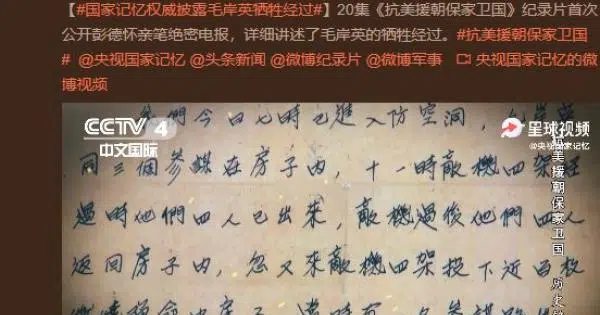 【#国家记忆权威披露毛岸英牺牲经过#】20集《抗美援朝保家卫国》纪录片首次
公开彭德怀亲笔绝密电报，详细讲述了毛岸英的牺牲经过。#抗美援朝保家卫国
# @央视国家记忆 @头条新闻 @微博纪录片 @微博军事 央视国家记忆的微
博视频
CCTV 4
中文国际
星球视频
@央视国家记忆
們今日七時已進入防空洞，毛岸英
同三個參謀在房子內，十一時敵機四架經
過時他們四人已出來，敵機過後他們四人
返回房子內，忽又來敵機四架投下近百枚
抗美援朝保家卫国